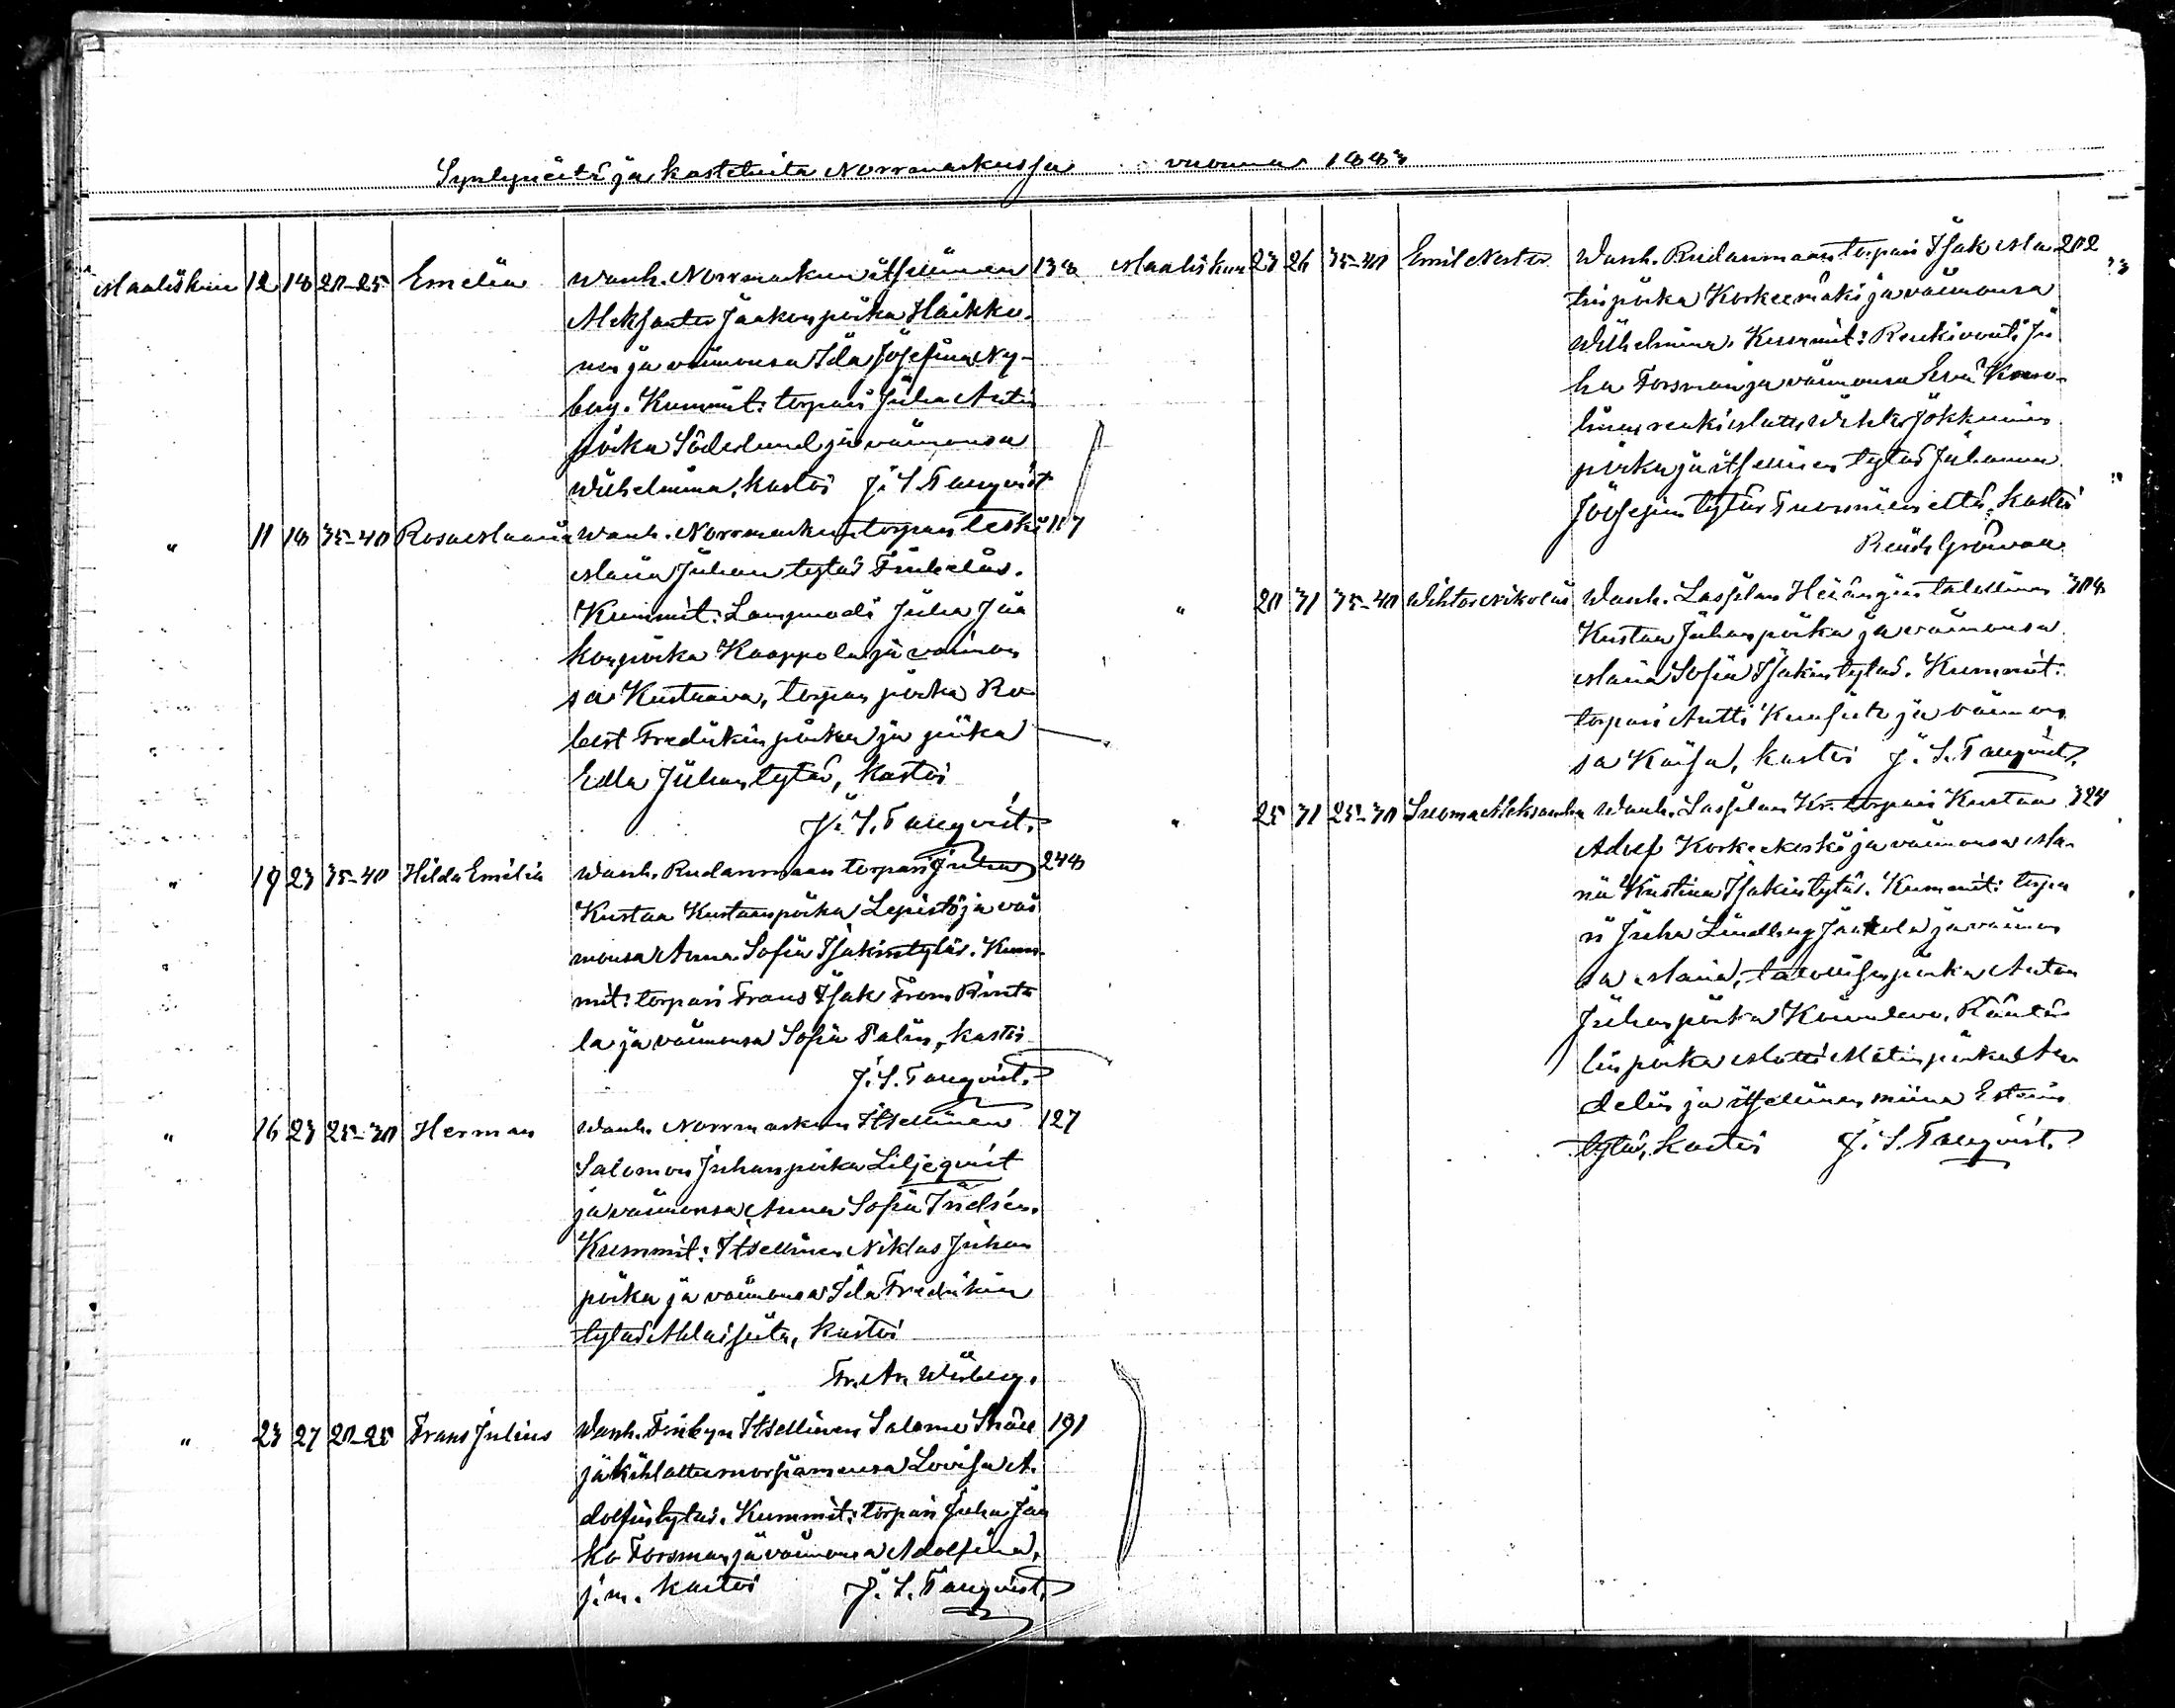 Syntyneitä ja kastetuita Norrmarkussa vuonna 1883
Maaliskuu 12 18 20-25 Emelia Wanh. Norrmarkun itsellinen 138
Aleksanter Jaakonpoika Haikko-
nen ja vaimonsa Ida Josefina Ny-
berg. Kummit: torpari Juha Antin
poika Söderlund ja vaimonsa
Wilhelmina, kastoi J. S. Tanqvist
" 11 18 35-40 Rosa Maria Wanh. Norrmarkun torpan leski 117
Maria Juhan tytär Finkelus.
Kummit: Lampuodi Juha Jaa
konpoika Kaappola ja vaimon
sa Kustaava, torpan poika Ro
bert Fredrikin poika ja piika
Edla Juhan tytär, kastoi
J. S. Tanqvist.
" 19 23 35-40 Hilda Emilia Wanh. Rudanmaan torpari Juha 248
Kustaa Kustaanpoika Lepistö ja vai
monsa Anna Sofia Isakintytär. Kum-
mit: torpari Frans Isak From Rinta
la ja vaimonsa Sofia Palin, kastoi
J. S. Tanqvist.
" 16 23 25-30 Herman Wanh. Norrmarkun Itsellinen 127
Salomon Juhanpoika Liljeqvist
ja vaimonsa Anna Sofia
Kummit: Itsellinen Niklas Juhan
poika ja vaimonsa Ida Fredrikin
tytär Ahlaisista, kastoi
Fr. Ar. Wiberg.
" 23 27 20-25 Frans Julius Wanh. Finbyn Itsellinen Salomo 191
ja kihlattu morsiamensa Lovisa A-
dolfintytär. Kummit: torpari Juha Jaa
ko Forsman ja vaimonsa Adolfina,
j.m. kastoi J. S. Tanqvist.
Maaliskuu 23 26 35-40 Emil Nestor Wanh. Rudanmaan torpari Isak Ma 202
tinpoika Korkeemäki ja vaimonsa
Wilhelmina. Kummit: Renkivouti Ju
ha Forsman ja vaimonsa Eva Karo-
liina, renki Matts Wihtor Jokkumin
poika ja itsellisen tytär Juhanna
Joosepin tytär kastoi
" 20 31 35-40 Wihtor Nikolai Wanh. Lassilan Heinijoen talollinen 308
Kustaa Juhanpoika ja vaimonsa
Maria Sofia Isakin tytär. Kummit:
torpari Antti ja vaimon
sa Kaisa, kastoi J. S. Tanqvist.
" 25 31 25-30 Suoma Aleksandra Wanh. Lassilan Kr. torpari Kustaa 324
Adolf Korkeekoski ja vaimonsa Ma-
ria Kristina Isakin tytär. Kummit: torpa
ri Juha Lindberg Jaakola ja vaimon
sa Maria, talollisenpoika Anton
Juhanpoika
lin poika Matti Matinpoika An
delin ja itsellinen miina
tytär, kastoi J. S. Tanqvist.